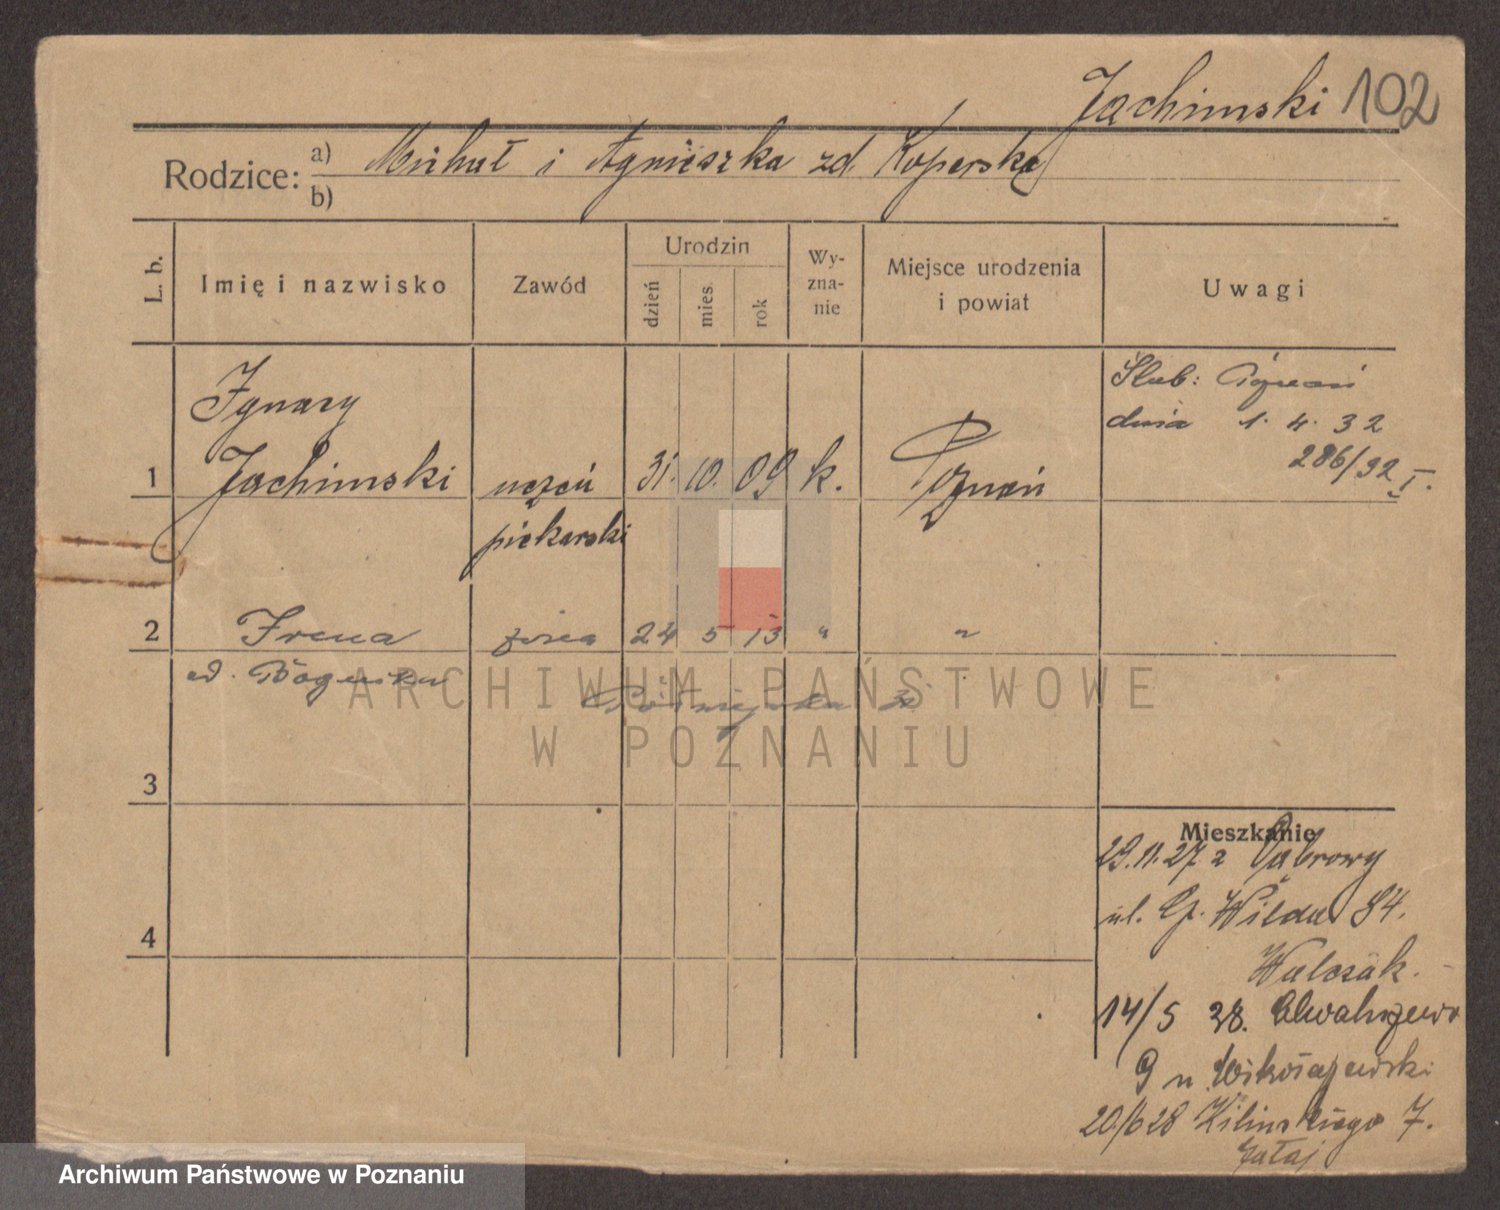 Jachimski 102
Rodzice: a) Michał i Agnieszka zd. Koperska
b)
L. b.
Imię i nazwisko
Zawód
Urodzin
dzień
mies.
rok
Wy-
zna-
nie
Miejsce urodzenia
i powiat
Uwagi
Ślub: Poznań
dnia 1. 4. 32
286/32 I.
Ignacy
1 Jachimski uczeń 31. 10. 09 k. Poznań
piekarski
2 Irena żona 24 5 13 " "
zd.
ARCHIWUM PAŃSTWOWE
W POZNANIU
3
4
Mieszkanie
29.11.27 z Dąbrowy
ul. G. Wilda 84.
Walczak.
14/5 28. Chwaliszewo
9 u Mikołajewski
20/6 28 Kilińskiego 7.
Archiwum Państwowe w Poznaniu